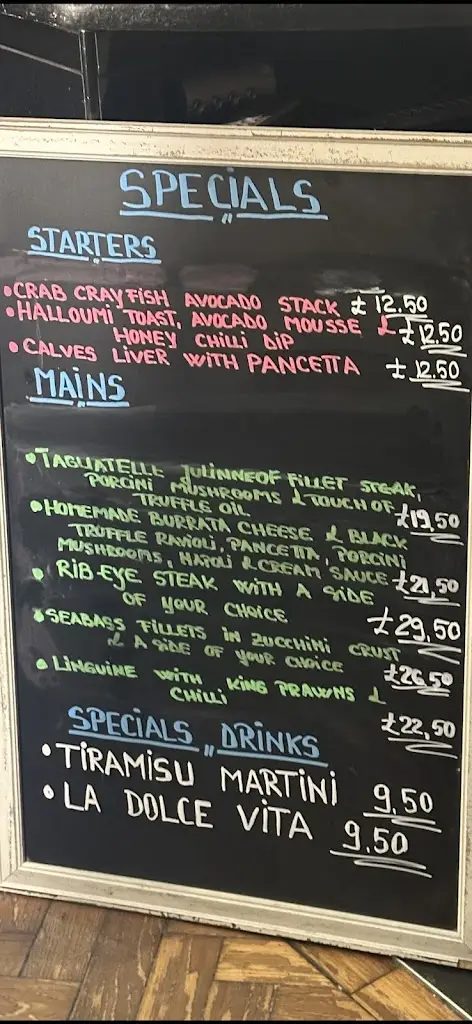 SPECIALS
STARTERS
•CRAB CRAYFISH AVOCADO STACK £12.50
•HALLOUMI TOAST, AVOCADO MOUSSE & £12,50
HONEY CHILLI DIP
•CALVES LIVER WITH PANCETTA £12.50
MAINS
•TAGLIATELLE JULINNEOF FILLET STEAK,
PORCINI MUSHROOMS & TOUCH OF
TRUFFLE OIL £19,50
•HOMEMADE BURRATA CHEESE & BLACK
TRUFFLE RAVIOLI, PANCETTA, PORCINI
MUSHROOMS, NAPOLI & CREAM SAUCE £21,50
•RIB-EYE STEAK WITH A SIDE
OF YOUR CHOICE £29,50
•SEABASS FILLETS IN ZUCCHINI CRUST
& A SIDE OF YOUR CHOICE £26,50
•LINGUINE WITH KING PRAWNS &
CHILLI £22,50
SPECIALS DRINKS
•TIRAMISU MARTINI 9,50
•LA DOLCE VITA 9.50